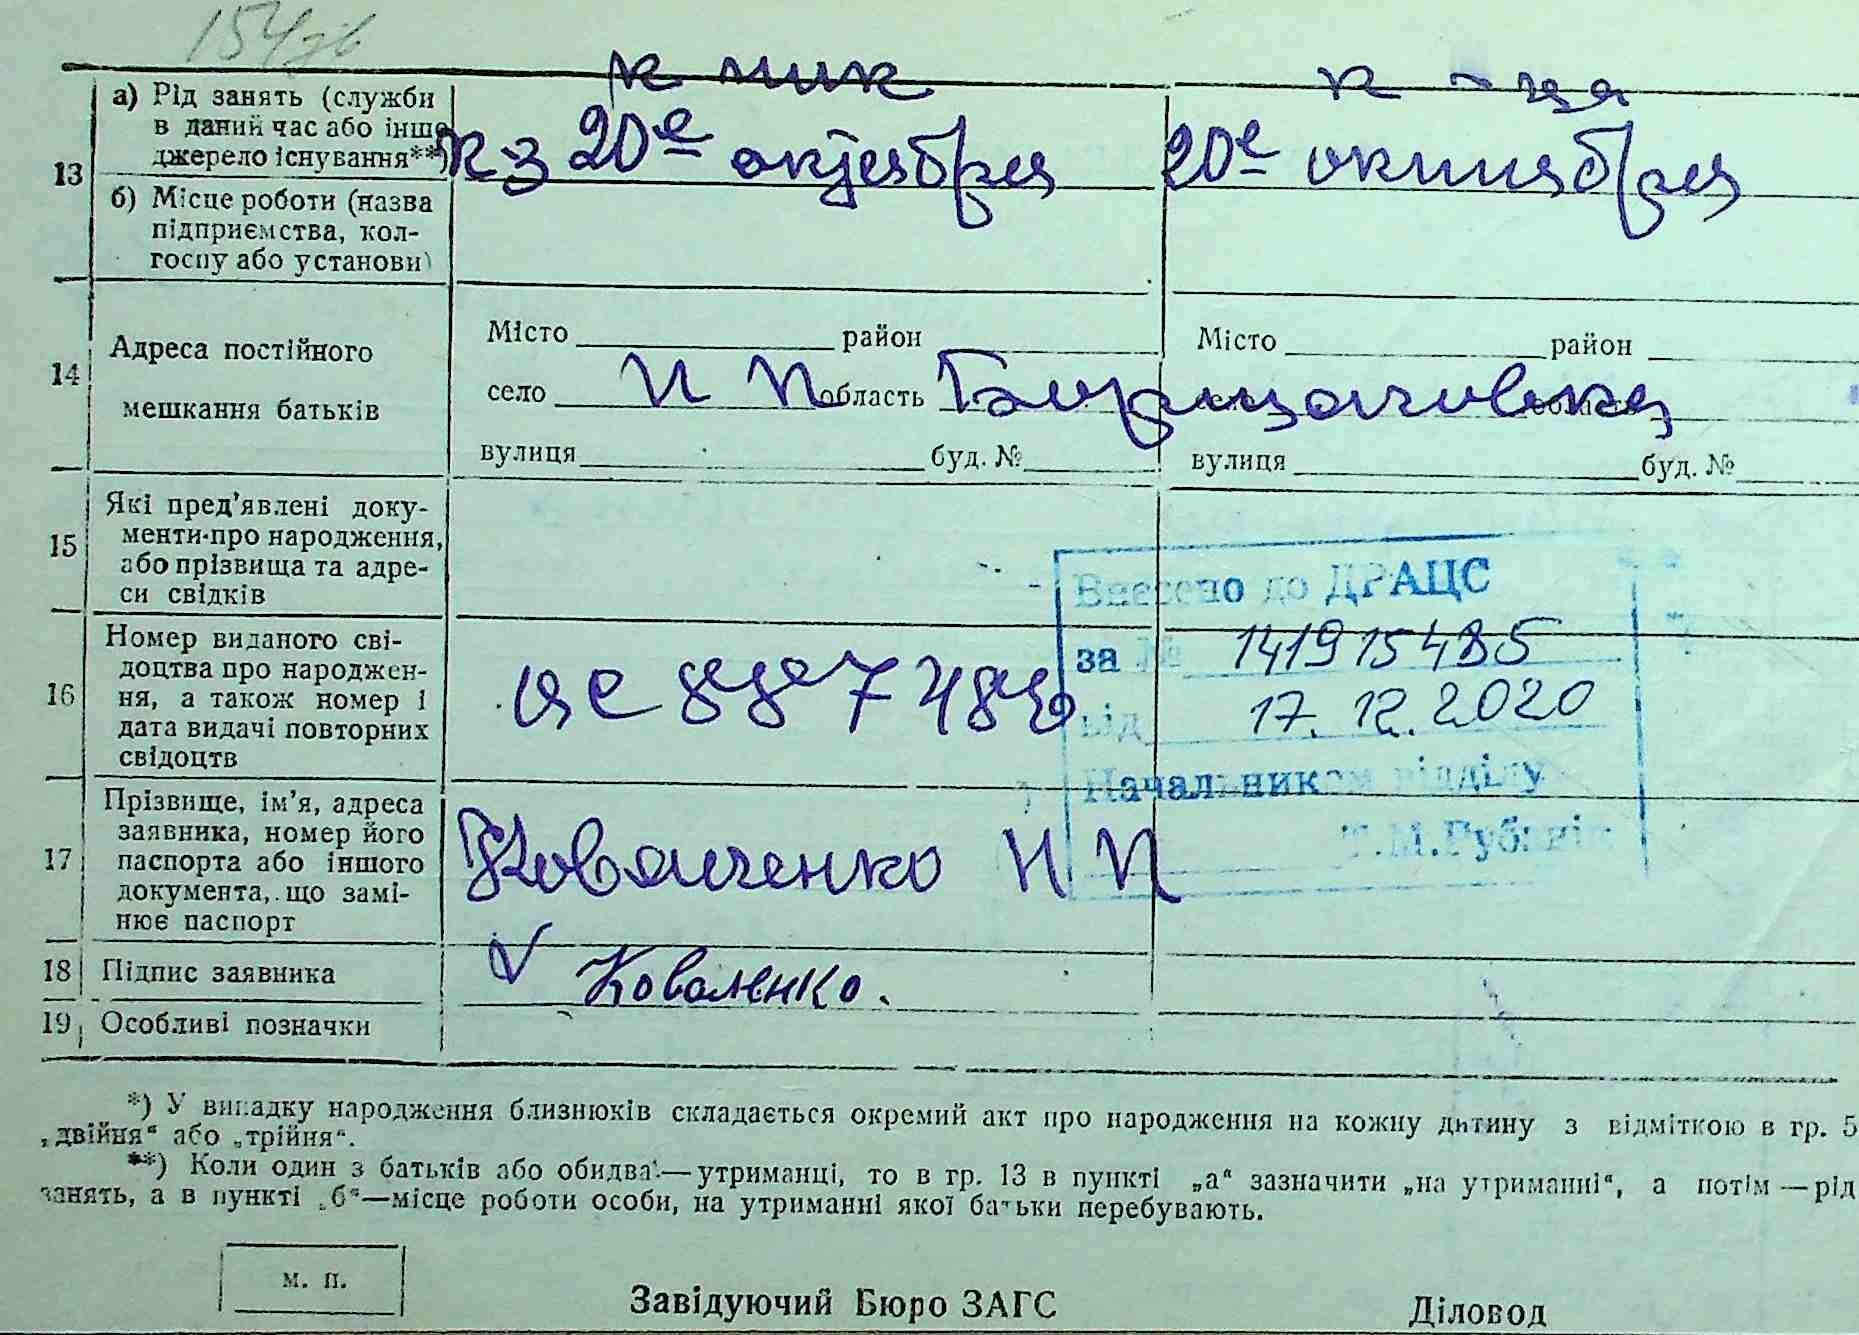 154зв
к ник к-ца
13 а) Рід занять (служби в даний час або інше джерело існування**) к-з 20е октября 20е октября
б) Місце роботи (назва підприємства, колгоспу або установи)
14 Адреса постійного мешкання батьків
Місто район Місто район
село область
вулиця буд. № вулиця буд. №
15 Які пред'явлені документи про народження, або прізвища та адреси свідків
Внесено до ДРАЦС
за № 141915485
від 17.12.2020
Начальником відділу
16 Номер виданого свідоцтва про народження, а також номер і дата видачі повторних свідоцтв
17 Прізвище, ім'я, адреса заявника, номер його паспорта або іншого документа, що замінює паспорт Коваленко
18 Підпис заявника Коваленко.
19 Особливі позначки
*) У випадку народження близнюків складається окремий акт про народження на кожну дитину з відміткою в гр. 5
„двійня“ або „трійня“.
**) Коли один з батьків або обидва—утриманці, то в гр. 13 в пункті „а“ зазначити „на утриманні“, а потім—рід
занять, а в пункті „б“—місце роботи особи, на утриманні якої батьки перебувають.
м. п.
Завідуючий Бюро ЗАГС Діловод